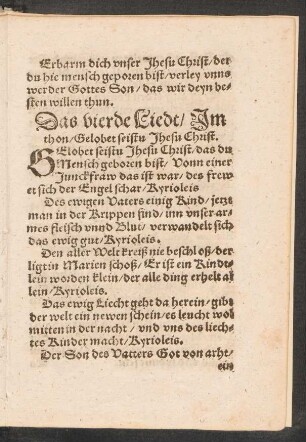 Erbarm dich vnser Jhesu Christ/ der
du hie mensch geporen bist/ verley vnns
wer der Gottes Son/ das wir deyn be-
sten willen thun.
Das vierde Liedt/ Im
thon/ Gelobet seistu Jhesu Christ.
GElobet seistu Jhesu Christ/ das du
Mensch geboren bist/ Vonn einer
Junckfraw das ist war/ des frew
et sich der Engel schar/ Kyrioleis
Des ewigen Vaters einig Kind/ jetzt
man in der Krippen find/ inn vnser ar-
mes fleisch vnnd Blut/ verwandelt sich
das ewig gut/ Kyrioleis.
Den aller Welt kreiß nie beschloß/ der
ligt in Marien schoß/ Er ist ein Kindt-
lein worden klein/ der alle ding erhelt al
lein/ Kyrioleis.
Das ewig Liecht geht da herein/ gibt
der welt ein newen schein/ es leucht wol
mitten in der nacht/ vnd vns des liech-
tes Kinder macht/ Kyrioleis.
Der Son des Vatters Got von arht/
ein